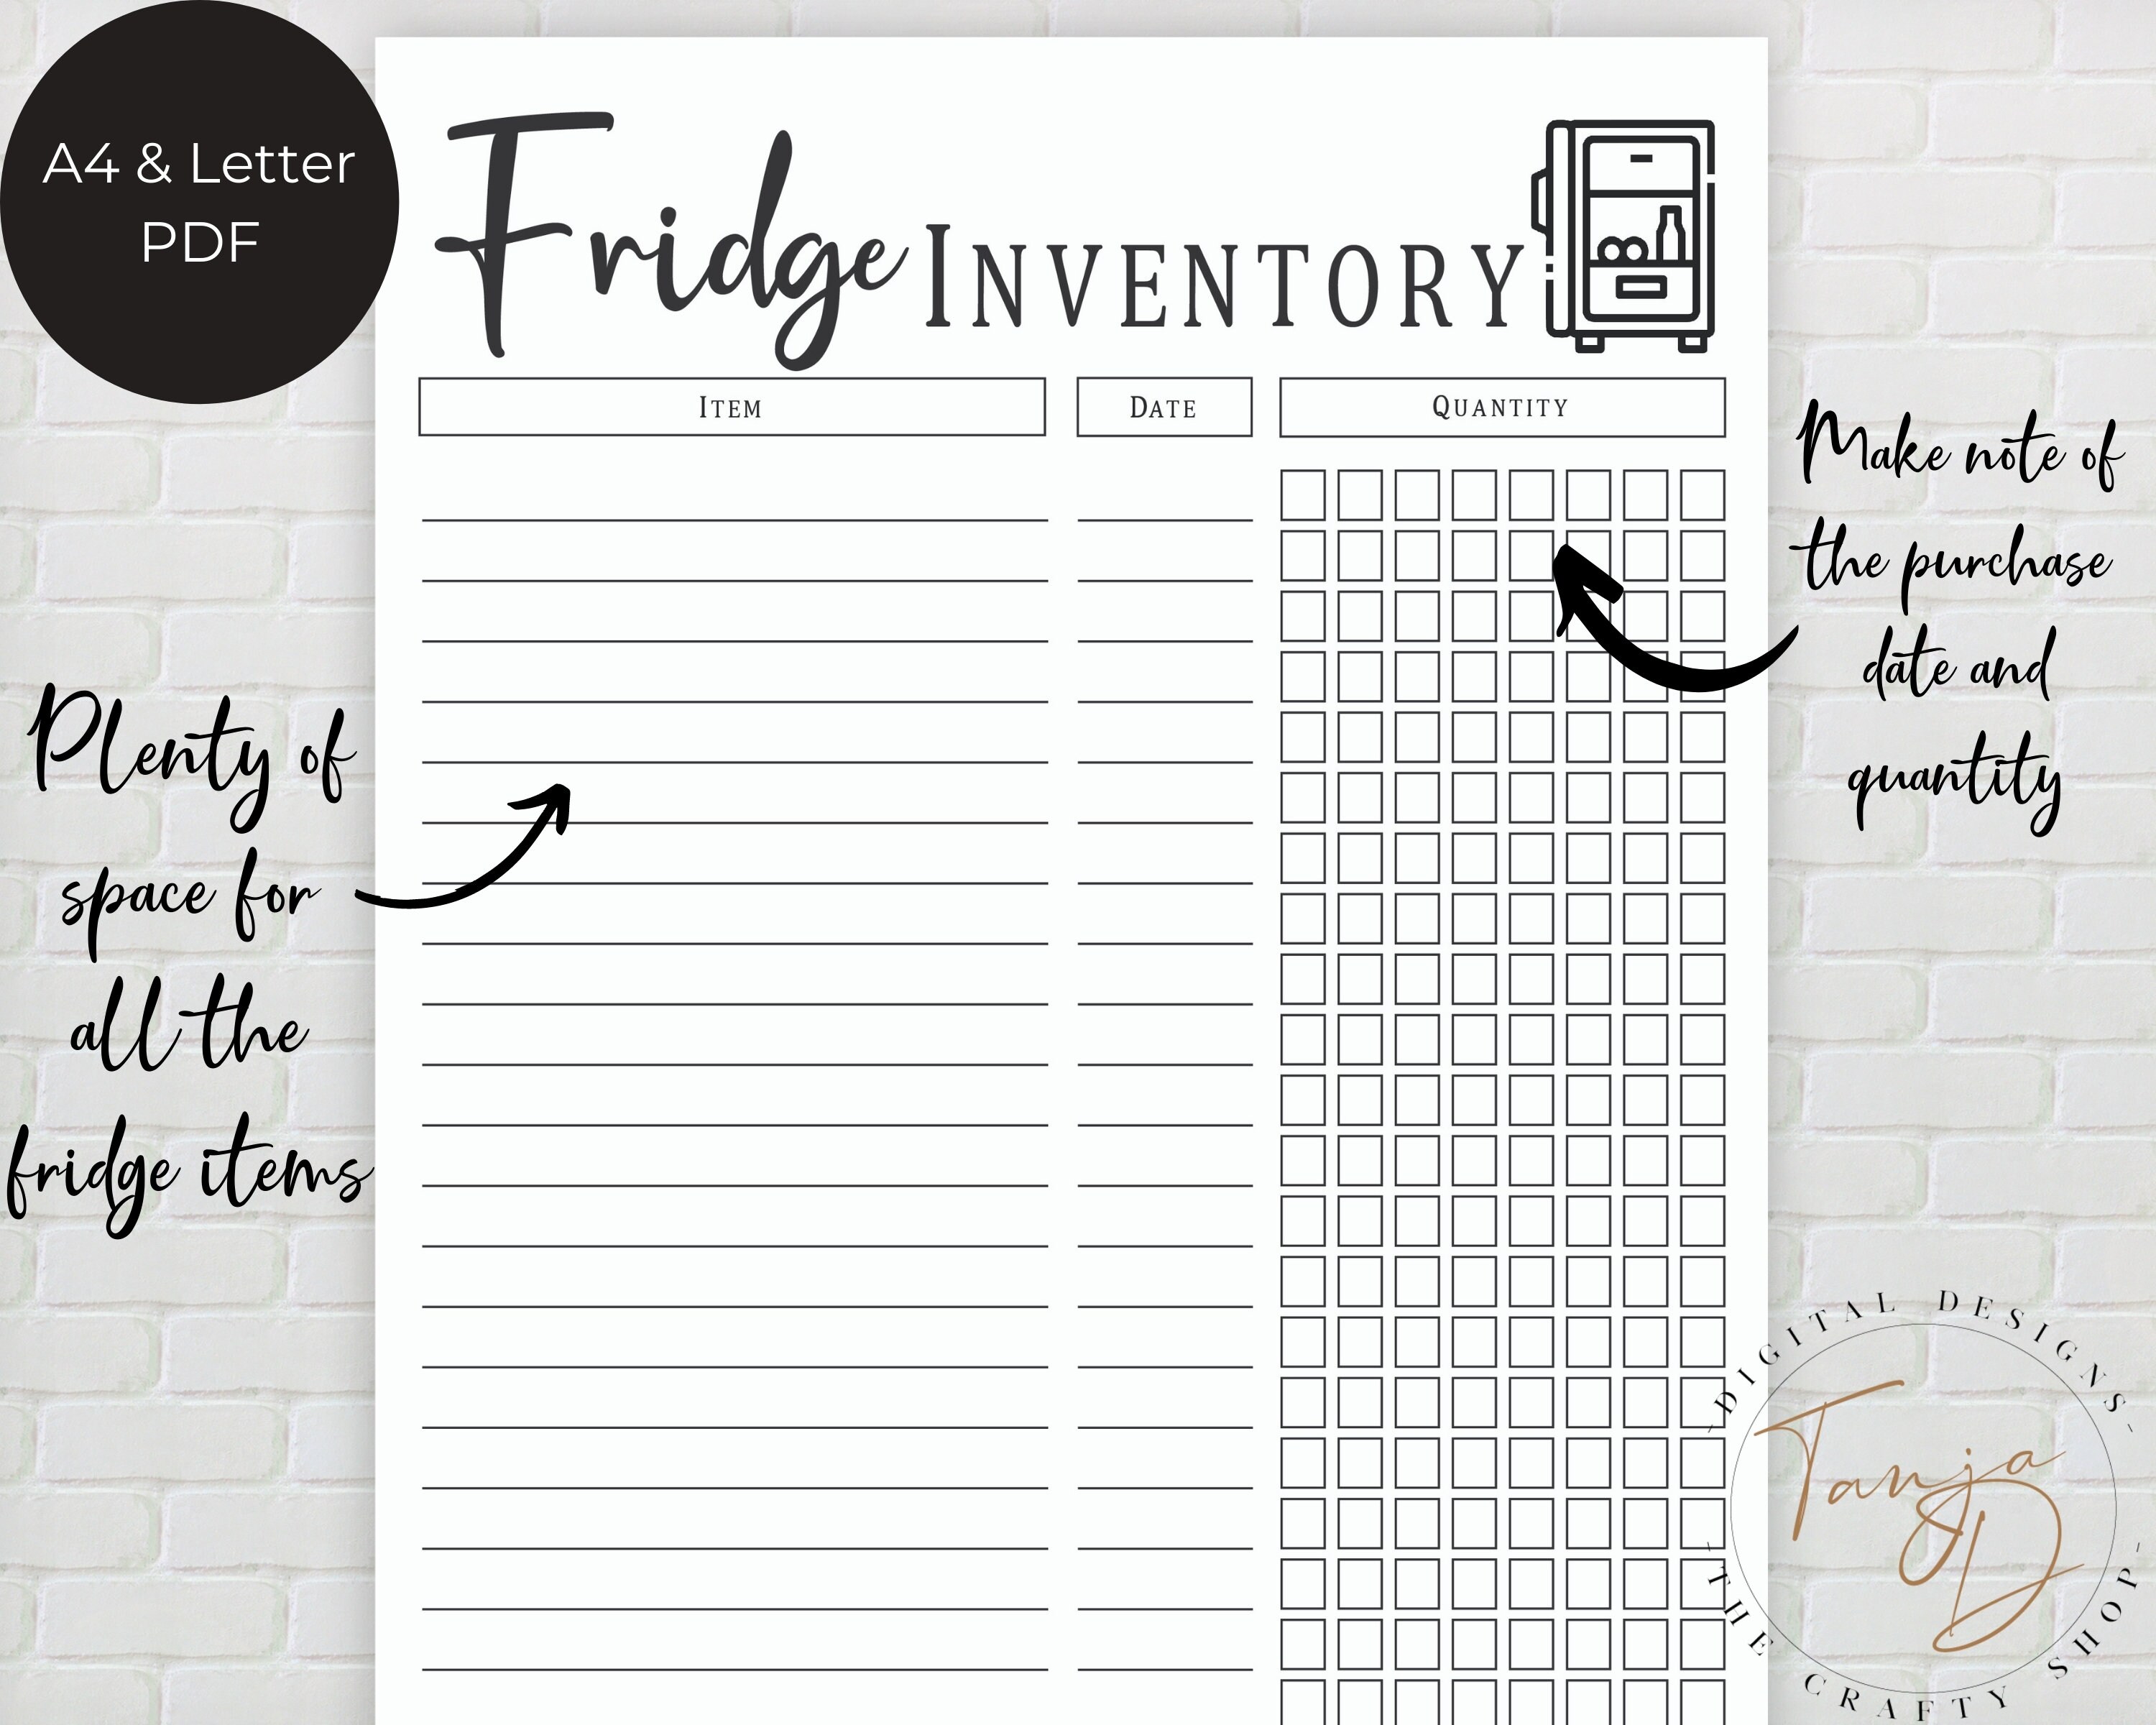 A4 & Letter
PDF
Fridge INVENTORY
ITEM
DATE
QUANTITY
Make note of
the purchase
date and
quantity
Plenty of
space for
all the
fridge items
-DIGITAL DESIGNS-
Tanja
D
-THE CRAFTY SHOP-